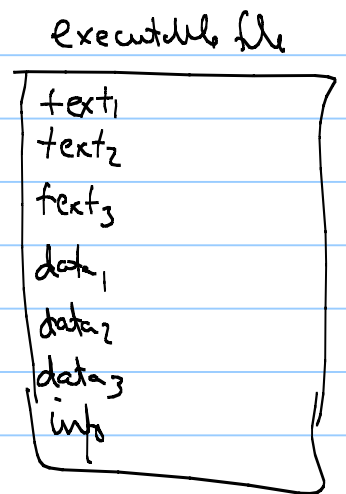 executable file
text₁
text₂
text₃
data₁
data₂
data₃
info